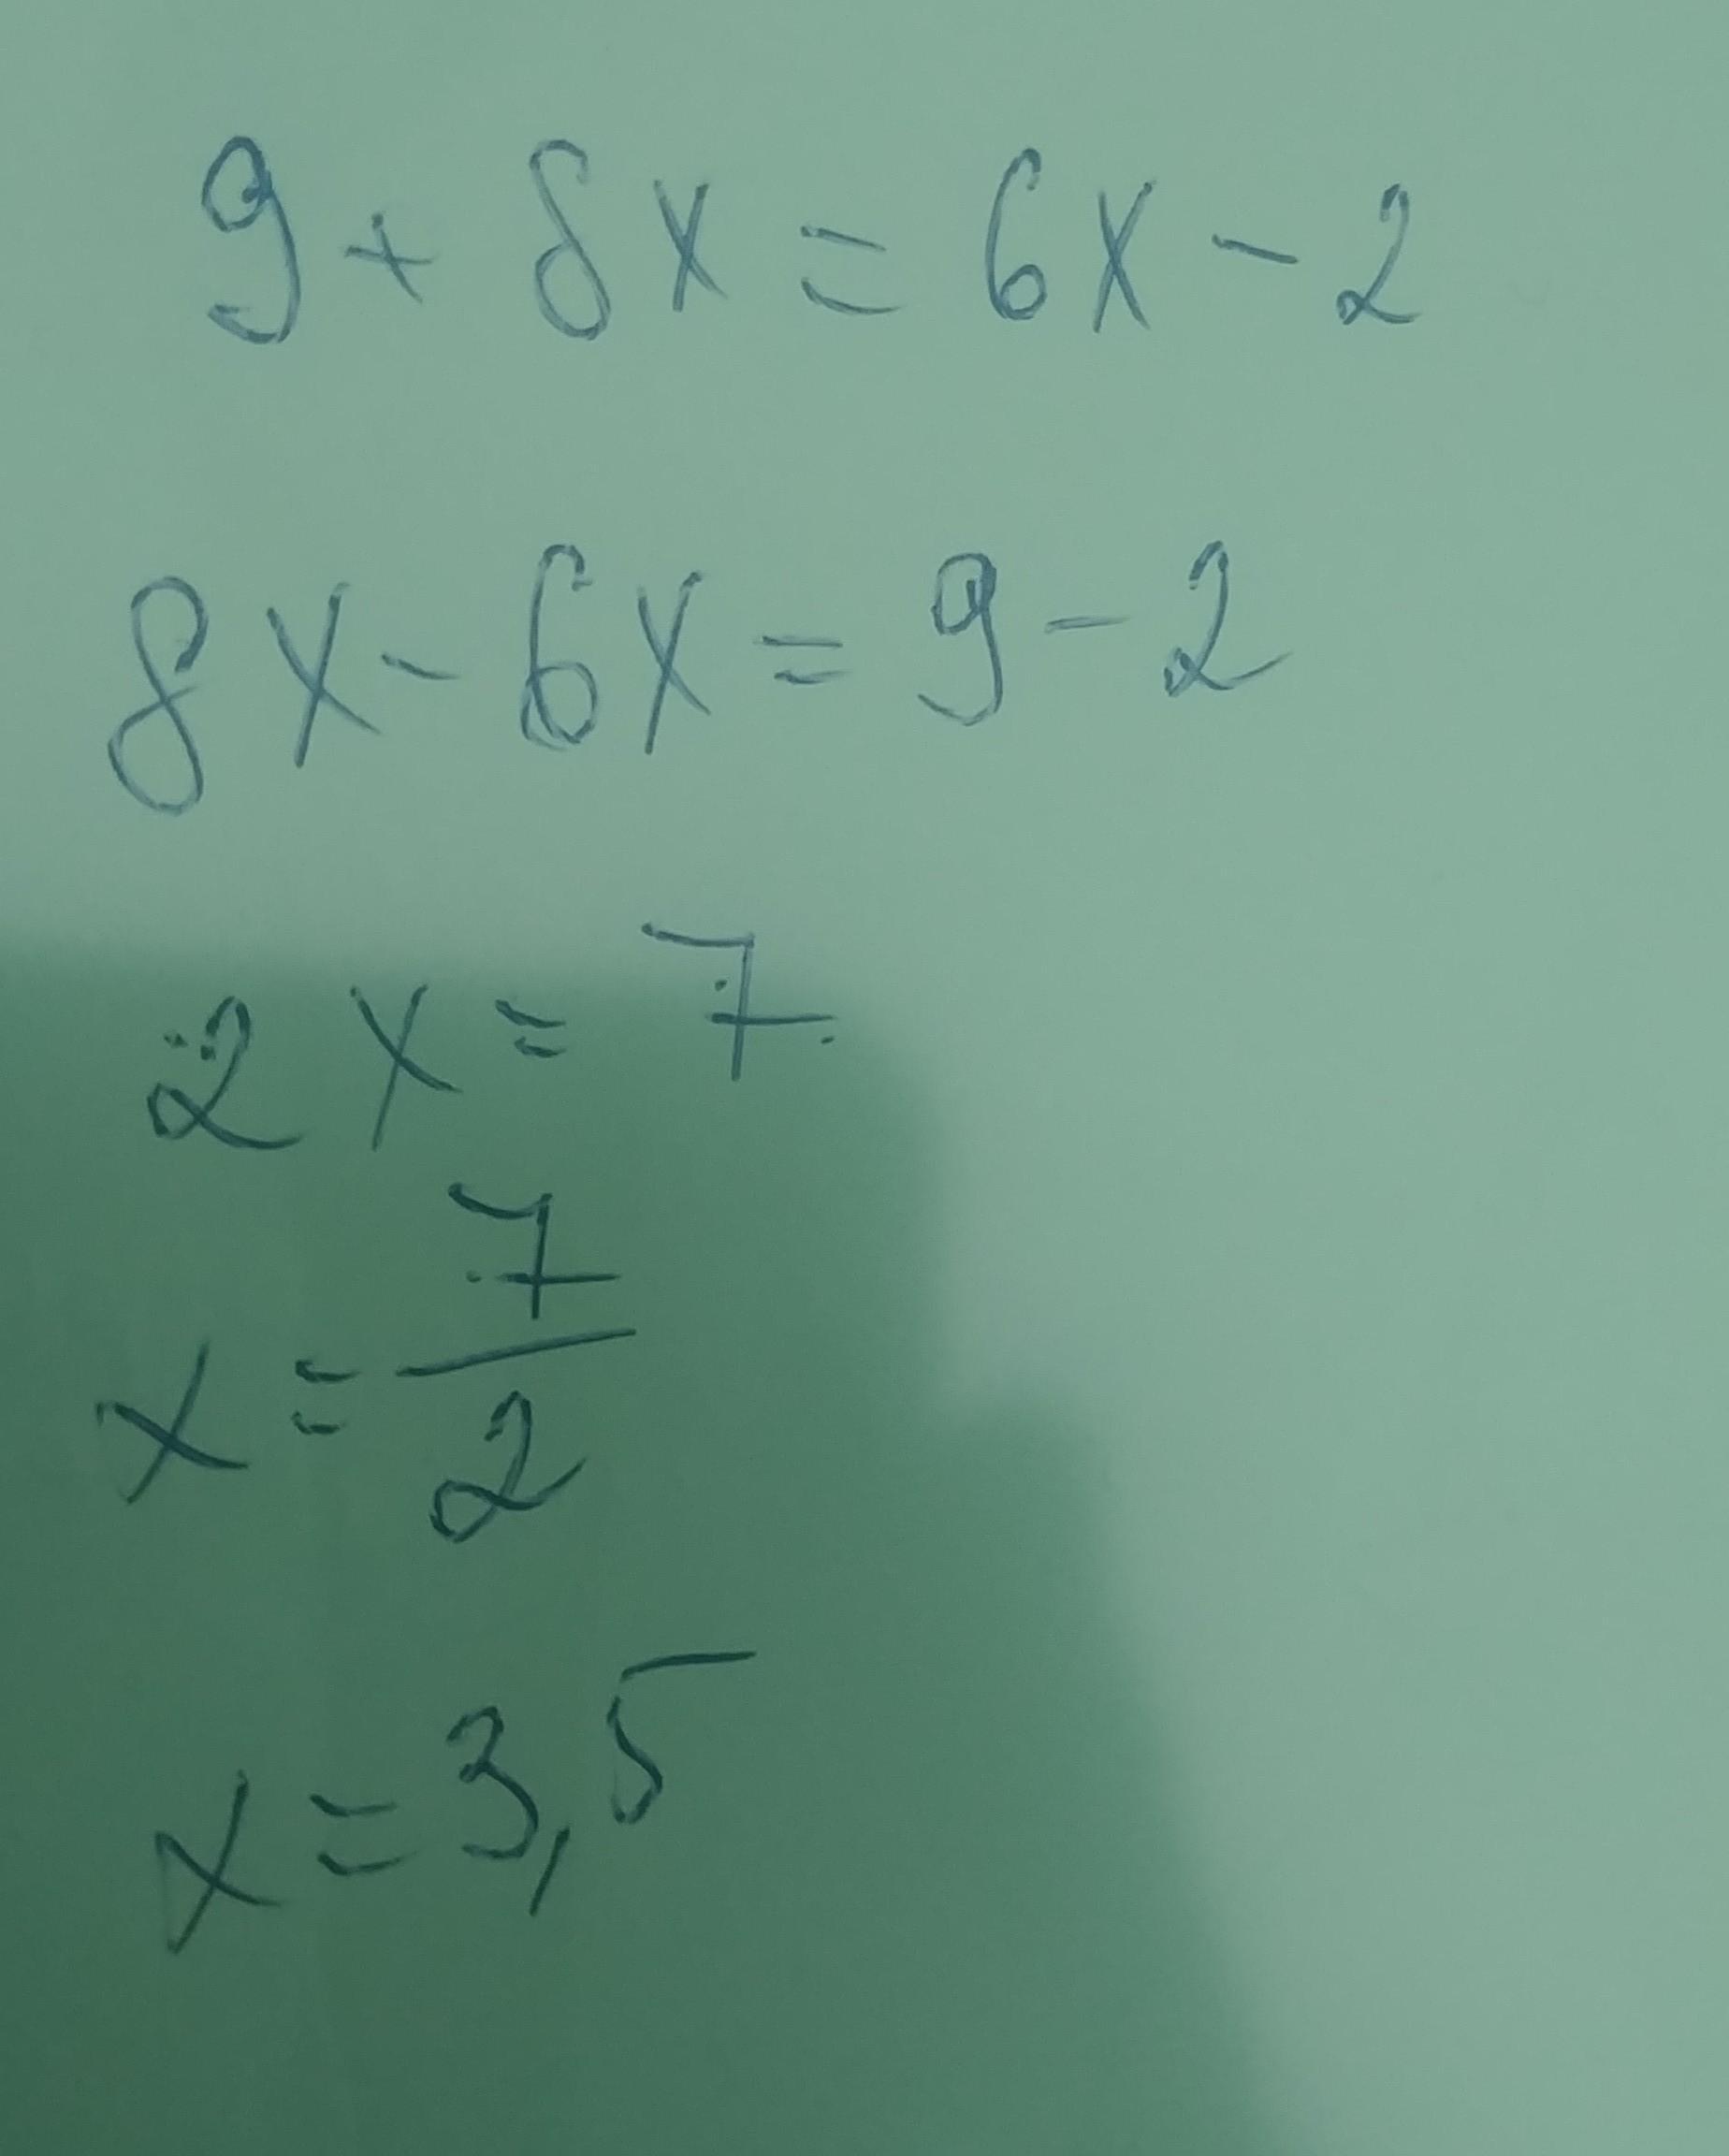 9 + 8x = 6x - 2
8x - 6x = 9 - 2
2x = 7
x = 7/2
x = 3,5